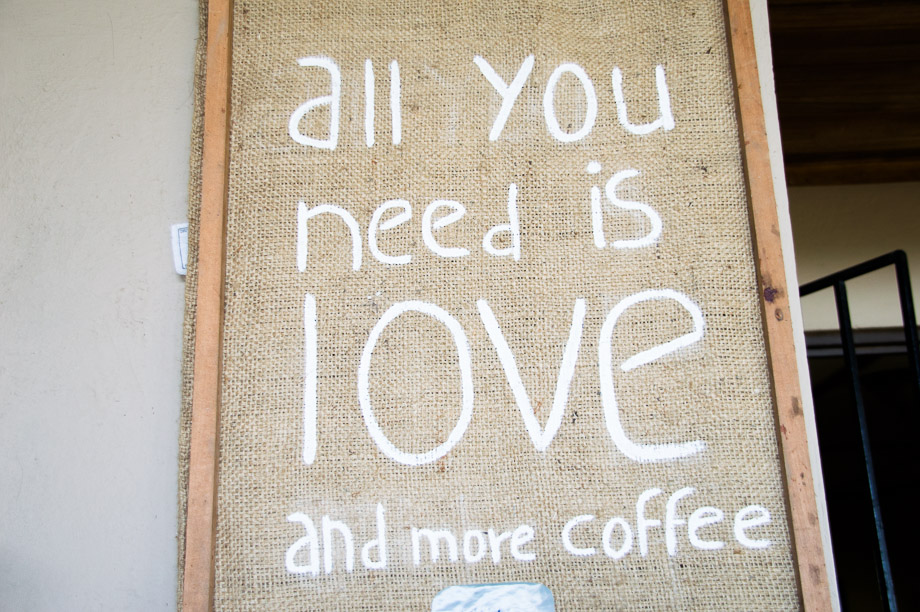 all you
need is
love
and more coffee